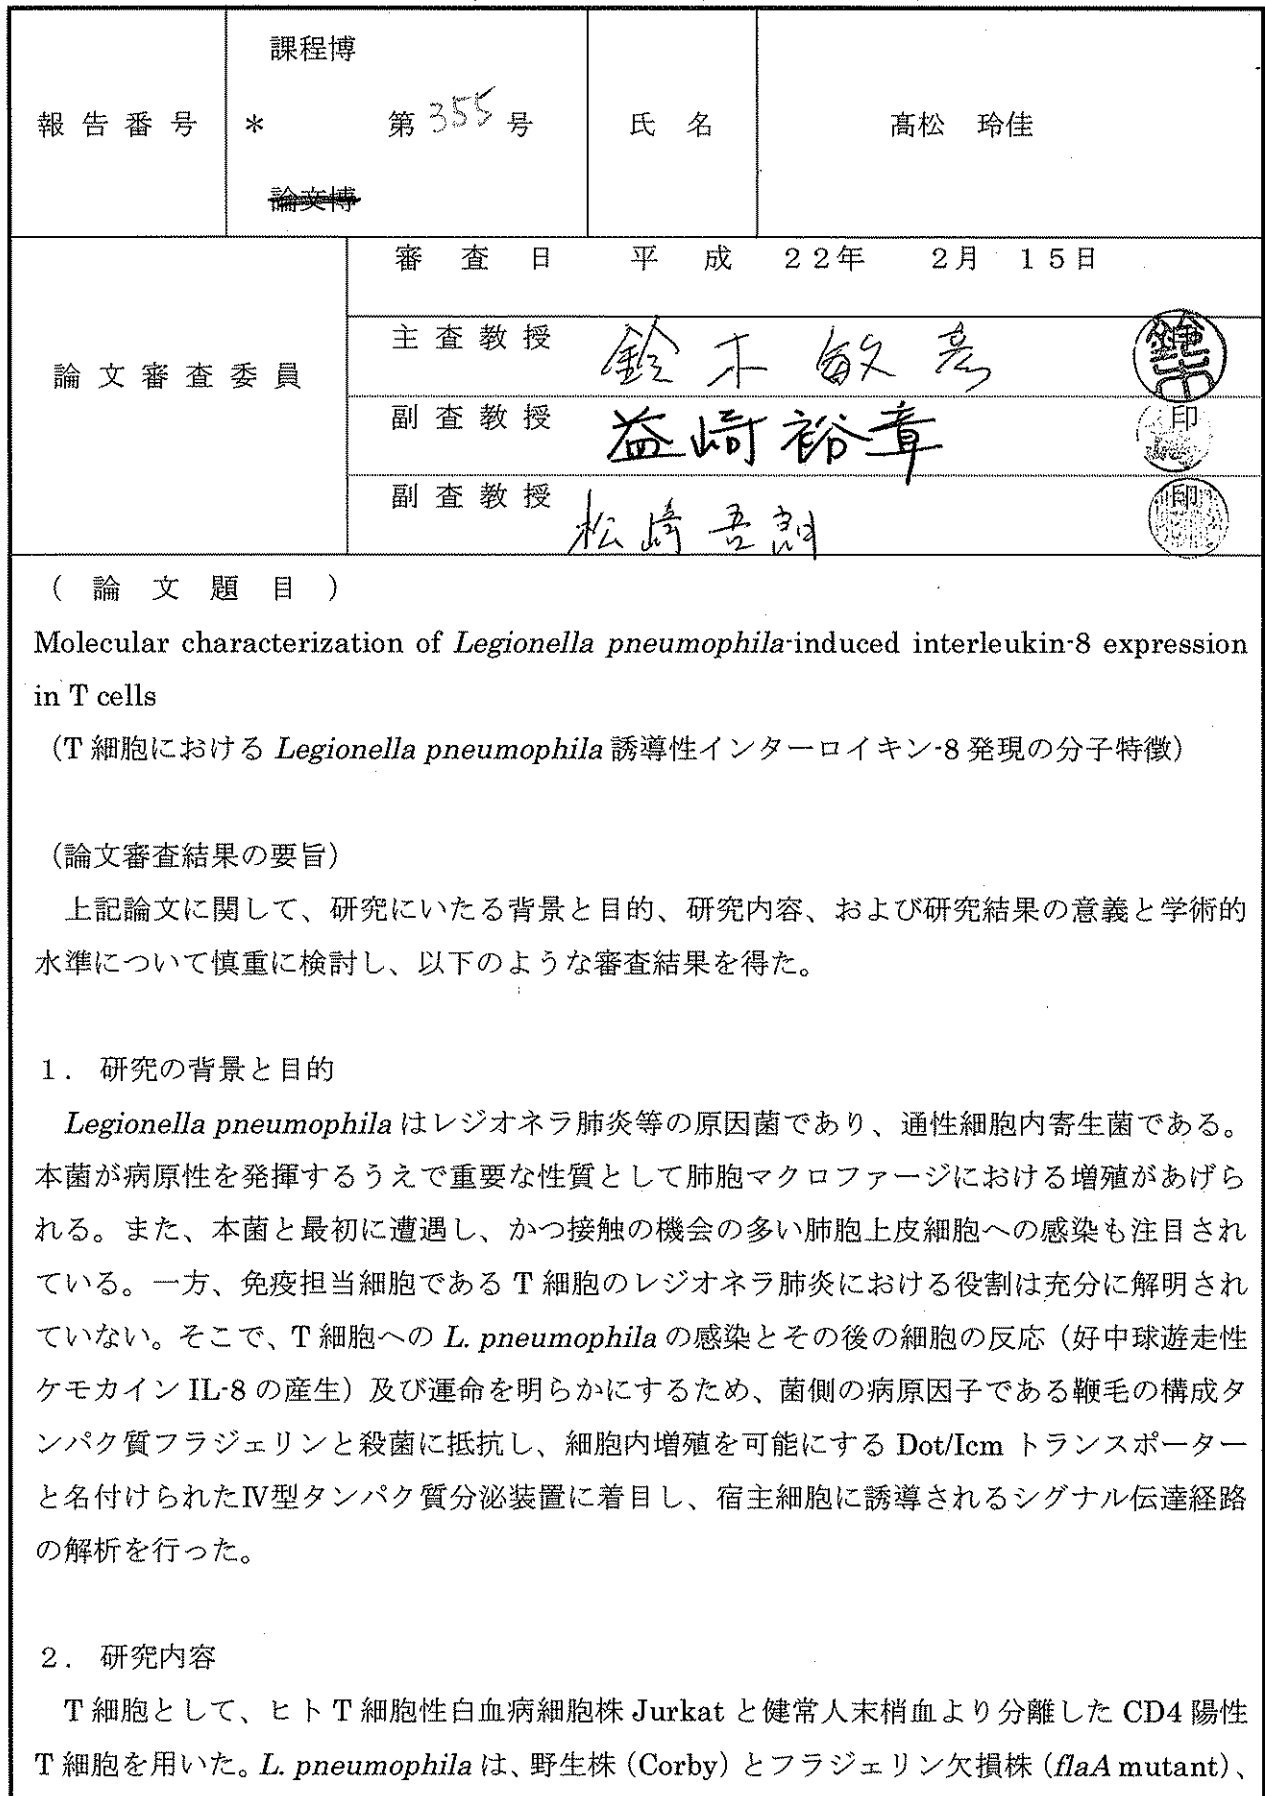 課程博
報告番号 * 第355号 氏名 髙松 玲佳
論文博
審査日 平成 22年 2月 15日
主査教授 鈴木敏彦
論文審査委員
副査教授 益崎裕章 印
副査教授 松﨑吾朗 印
(論文題目)
Molecular characterization of Legionella pneumophila-induced interleukin-8 expression
in T cells
(T細胞における Legionella pneumophila 誘導性インターロイキン-8 発現の分子特徴)
(論文審査結果の要旨)
上記論文に関して、研究にいたる背景と目的、研究内容、および研究結果の意義と学術的
水準について慎重に検討し、以下のような審査結果を得た。
1. 研究の背景と目的
Legionella pneumophila はレジオネラ肺炎等の原因菌であり、通性細胞内寄生菌である。
本菌が病原性を発揮するうえで重要な性質として肺胞マクロファージにおける増殖があげら
れる。また、本菌と最初に遭遇し、かつ接触の機会の多い肺胞上皮細胞への感染も注目され
ている。一方、免疫担当細胞である T 細胞のレジオネラ肺炎における役割は充分に解明され
ていない。そこで、T 細胞への L. pneumophila の感染とその後の細胞の反応(好中球遊走性
ケモカイン IL-8 の産生)及び運命を明らかにするため、菌側の病原因子である鞭毛の構成タ
ンパク質フラジェリンと殺菌に抵抗し、細胞内増殖を可能にする Dot/Icm トランスポーター
と名付けられたⅣ型タンパク質分泌装置に着目し、宿主細胞に誘導されるシグナル伝達経路
の解析を行った。
2. 研究内容
T 細胞として、ヒト T 細胞性白血病細胞株 Jurkat と健常人末梢血より分離した CD4 陽性
T 細胞を用いた。L. pneumophila は、野生株(Corby)とフラジェリン欠損株(flaA mutant)、